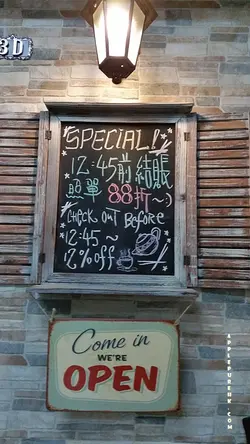 3D
SPECIAL!
12:45前結帳
照單 88折~:)
CHECK OUT BEFORE
12:45~
12% off
Come in
WE'RE
OPEN
APPLEFUREUK.COM